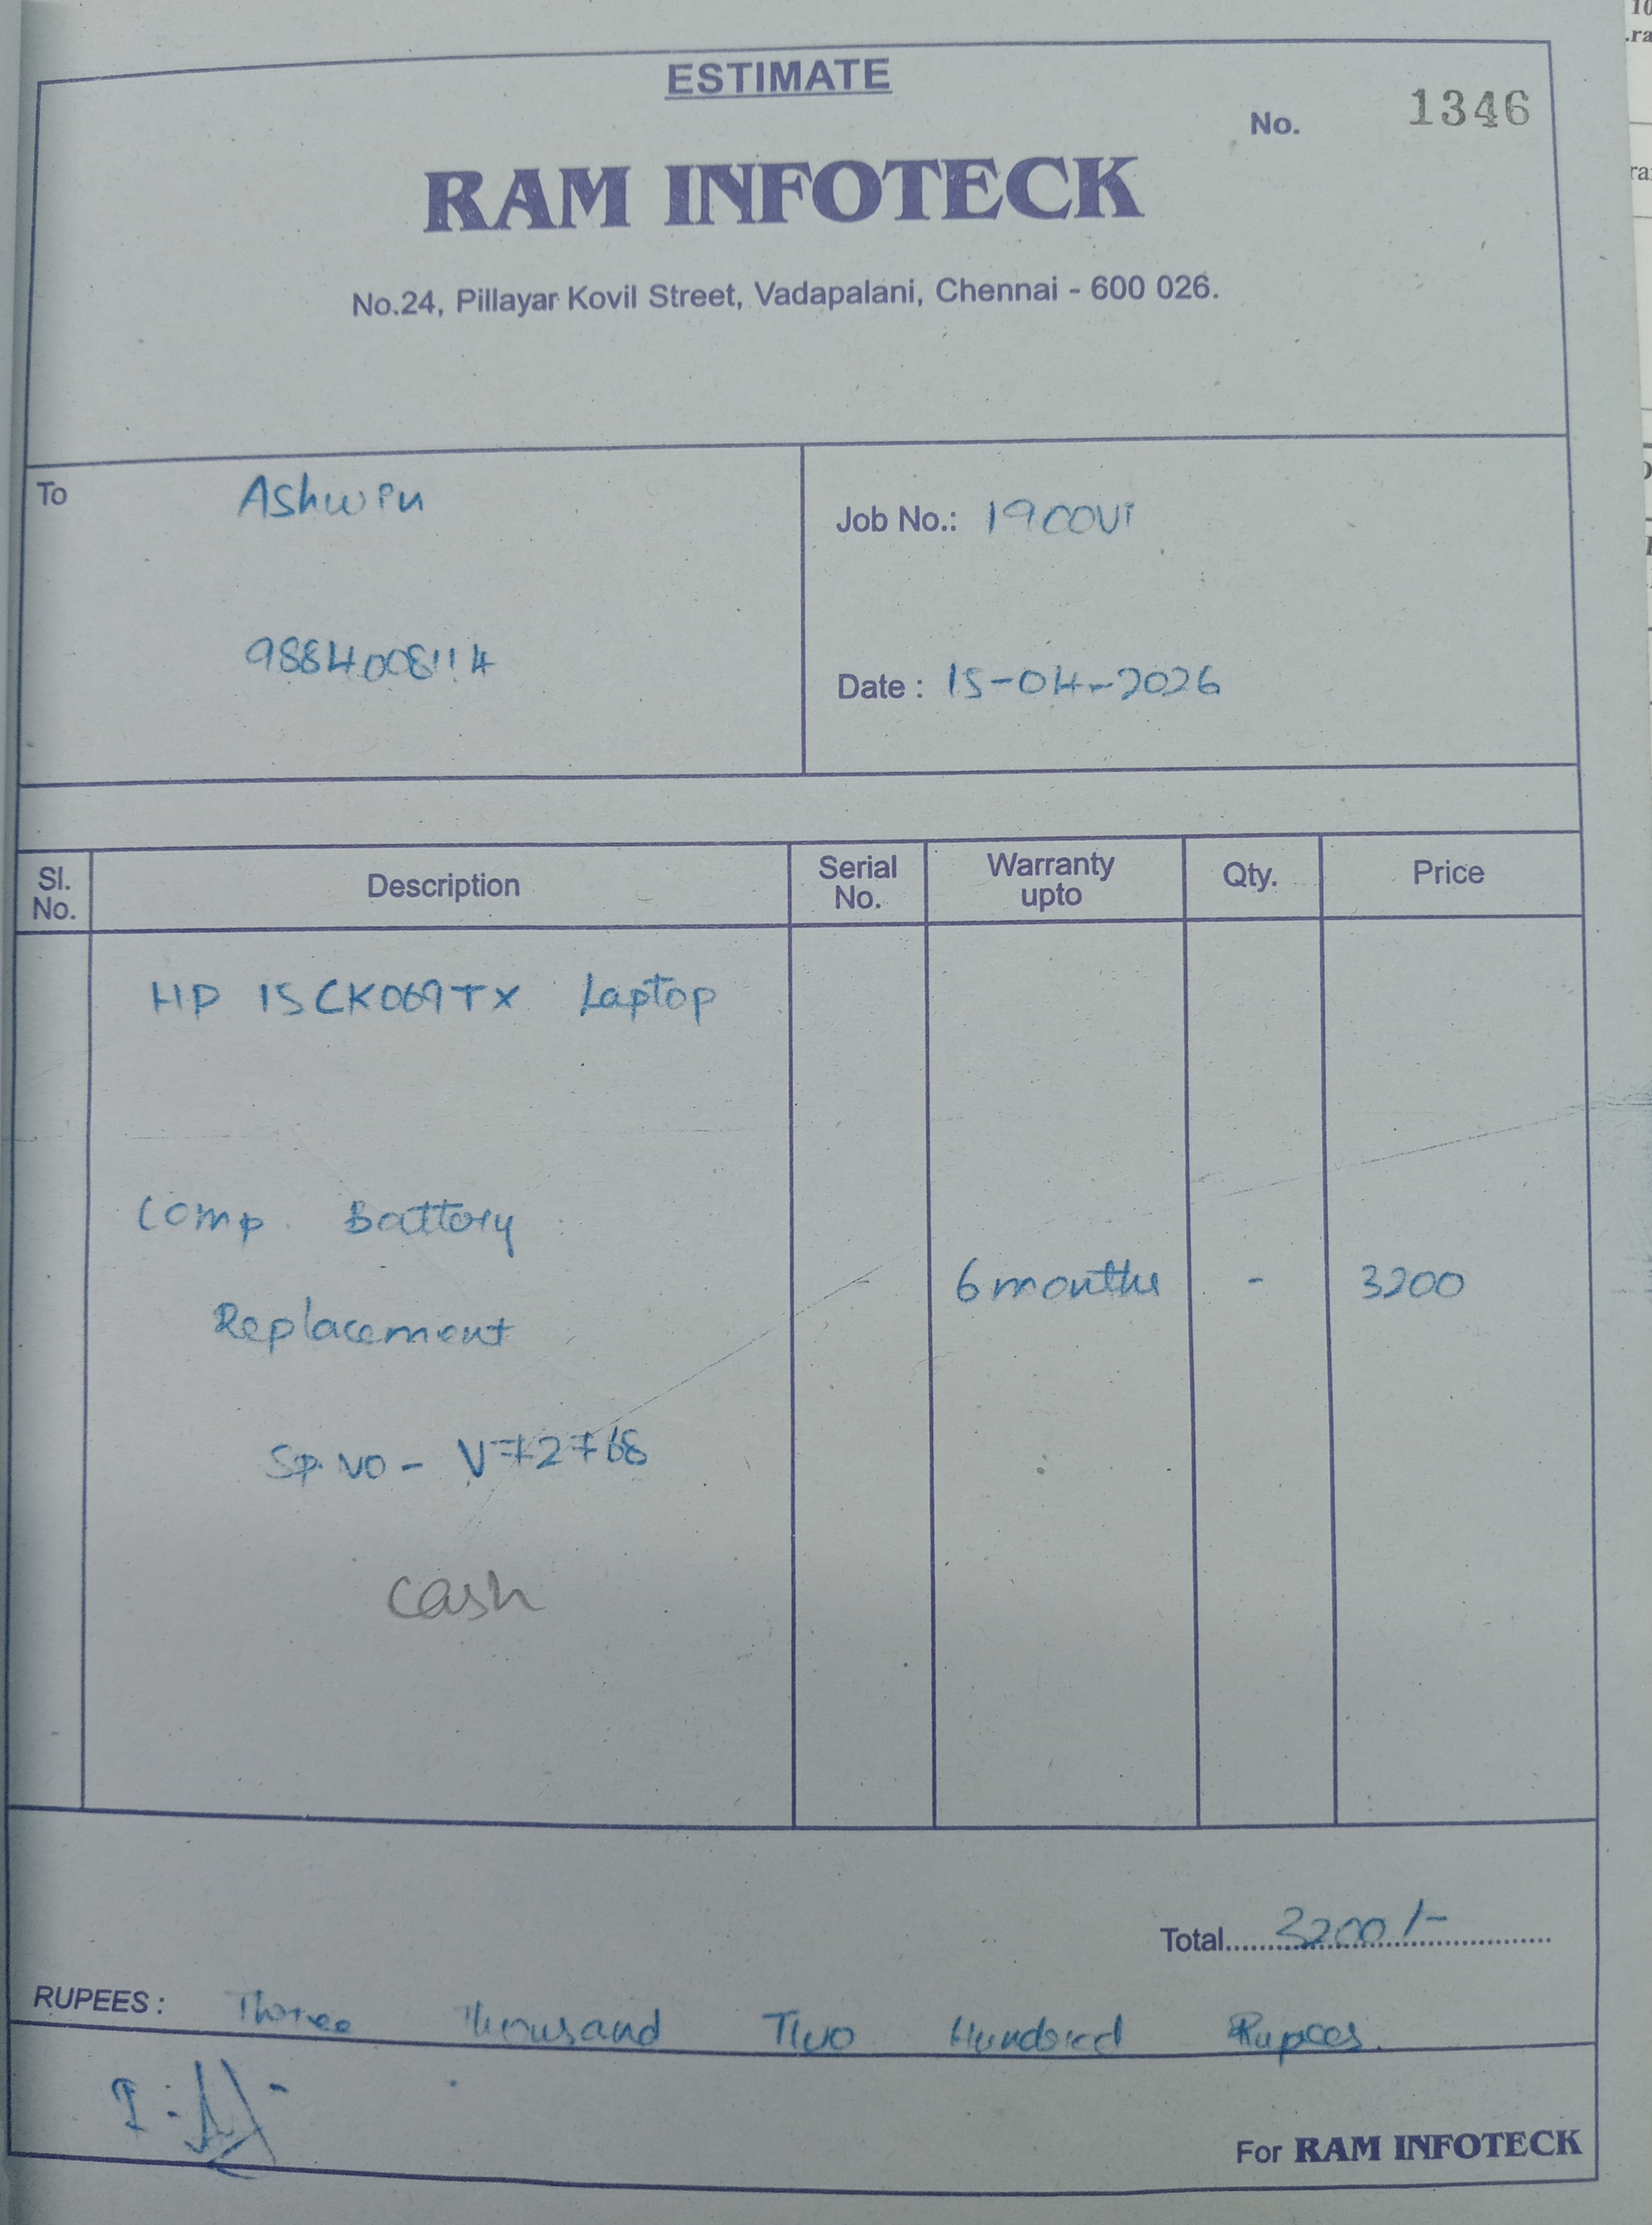 ESTIMATE
No. 1346
RAM INFOTECK
No.24, Pillayar Kovil Street, Vadapalani, Chennai - 600 026.
To Ashwin
Job No.:
9884008114
Date : 15-04-2026
Sl. No. Description Serial No. Warranty upto Qty. Price
HP 15CK069TX Laptop
Comp. Battery
6 months - 3200
Replacement
Sp. no - V72768
Cash
Total 3200/-
RUPEES : Three Thousand Two Hundred Rupees.
For RAM INFOTECK